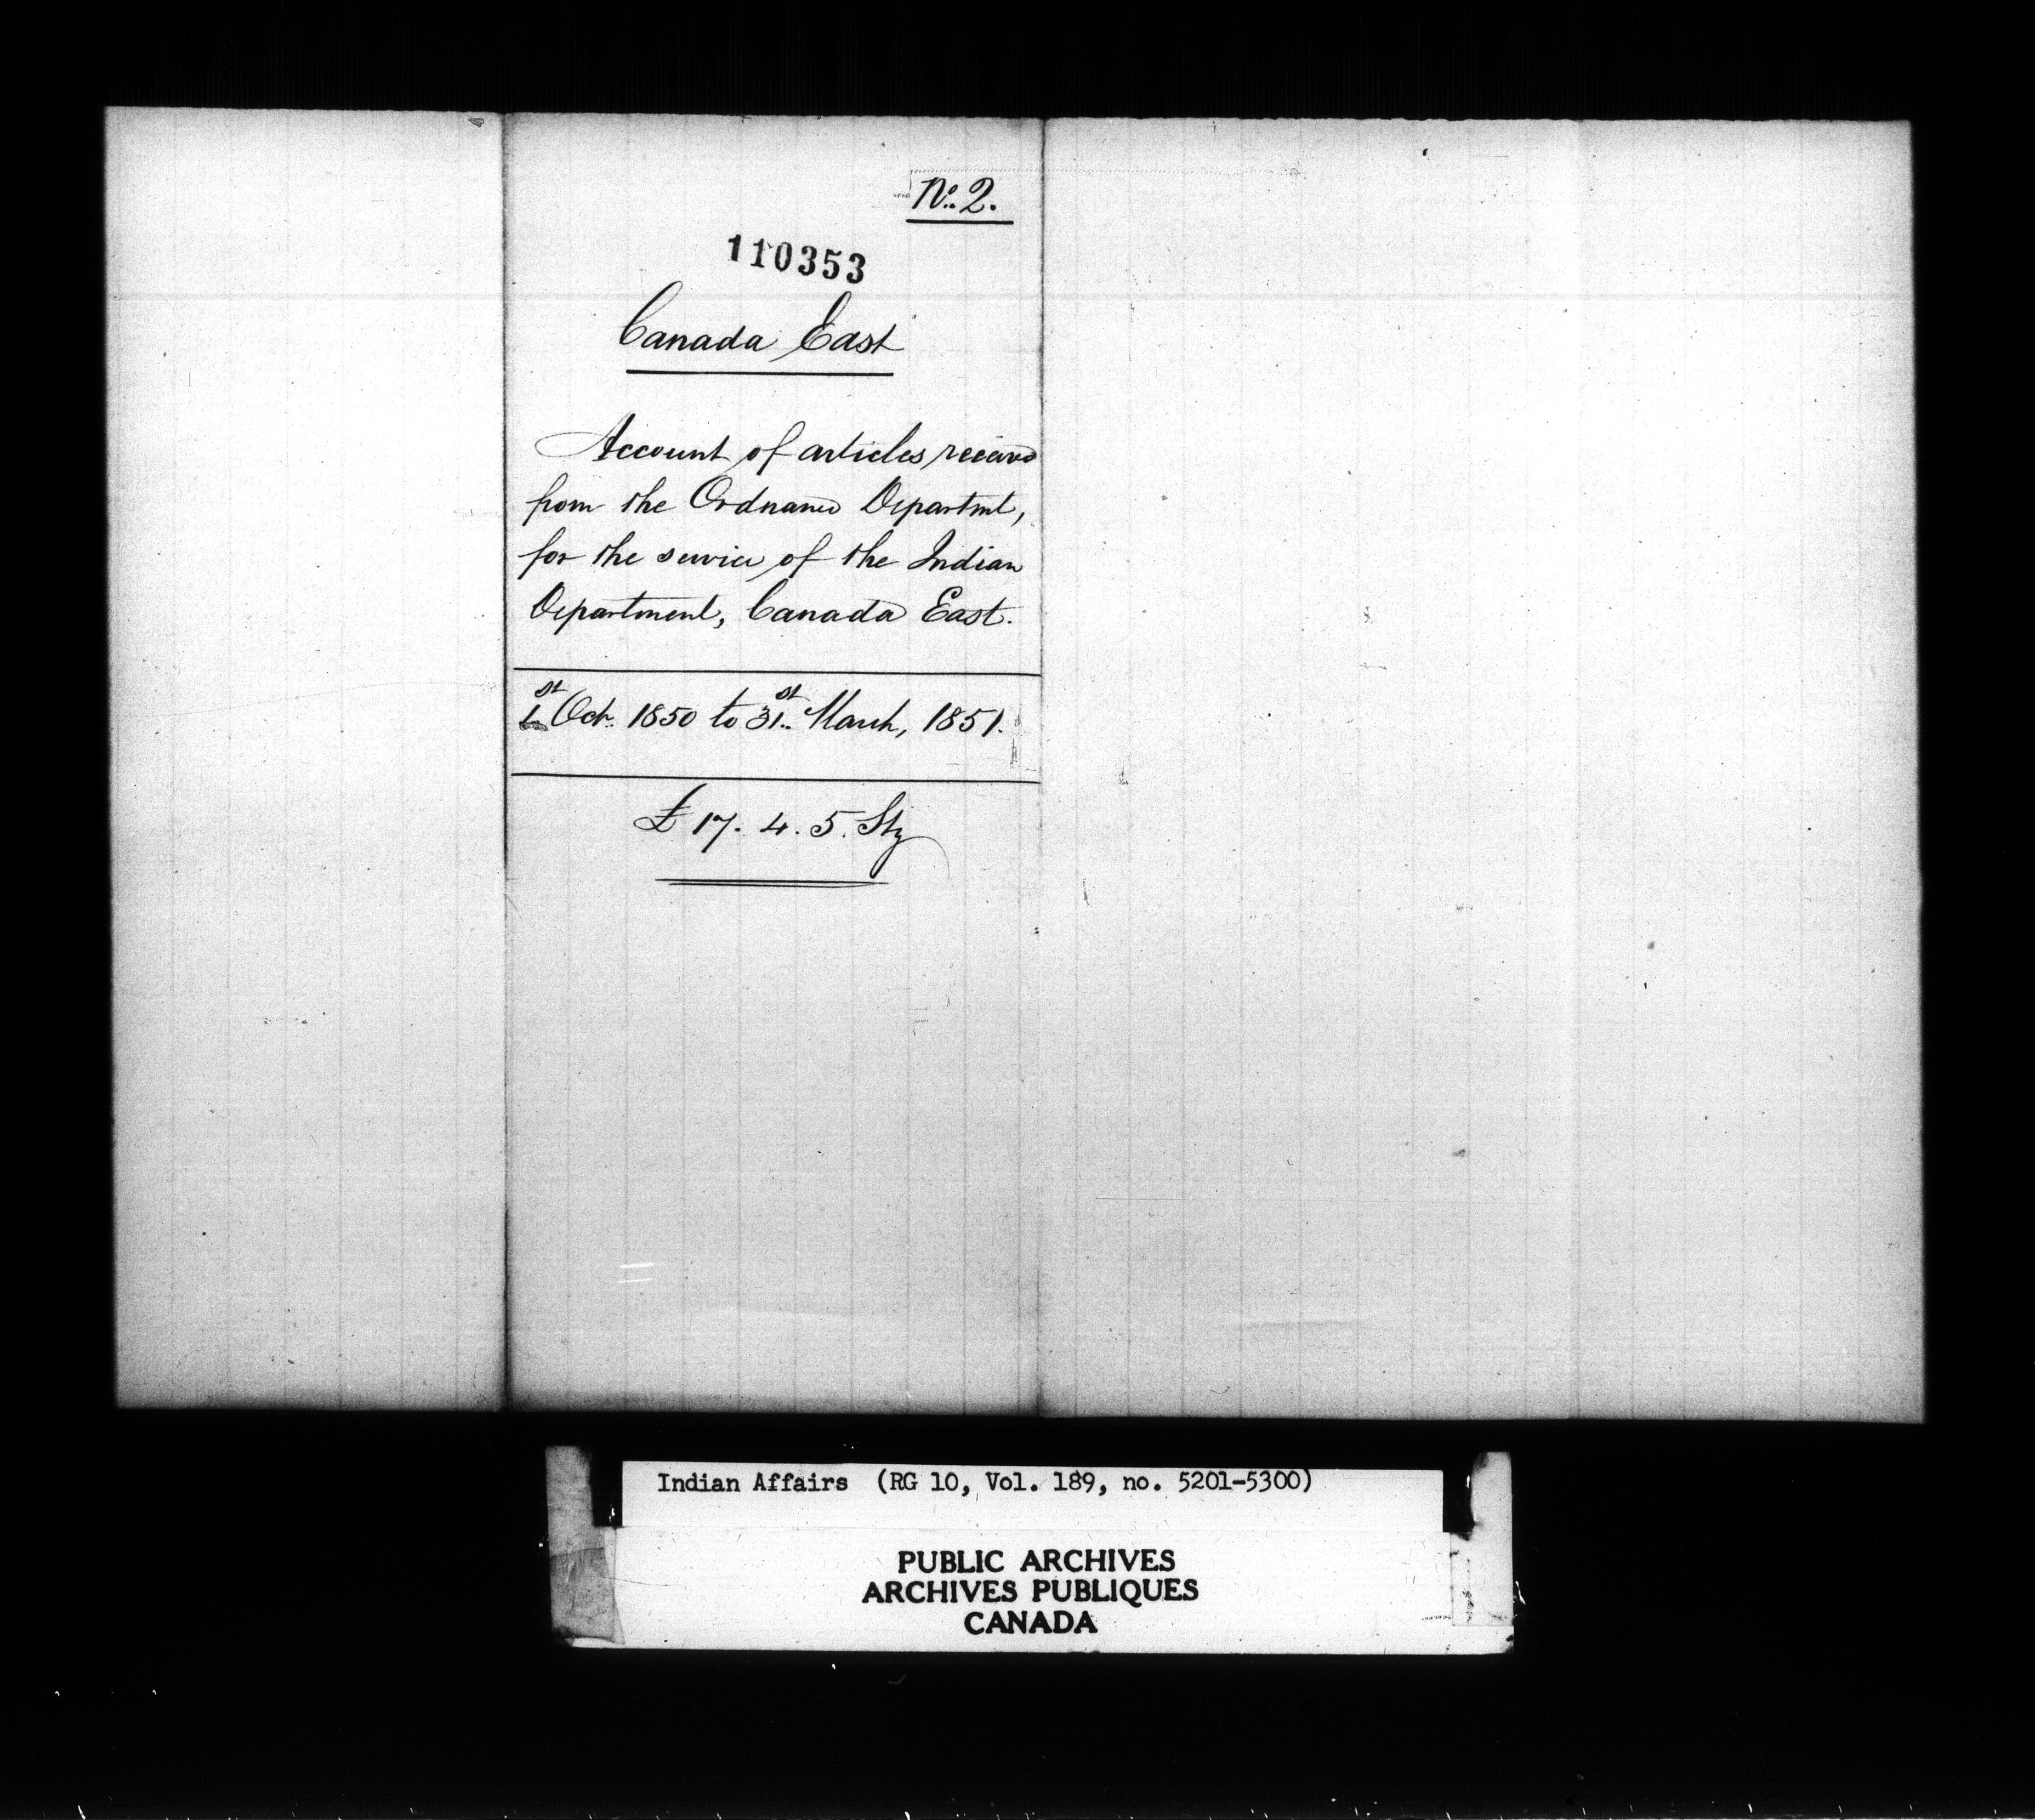 No. 2.
110353
Canada East
Account of articles received
from the Ordnance Departmt,
for the service of the Indian
Department, Canada East.
1st Oct. 1850 to 31st March, 1851.
£17. 4. 5. Stg
Indian Affairs (RG 10, Vol. 189, no. 5201-5300)
PUBLIC ARCHIVES
ARCHIVES PUBLIQUES
CANADA